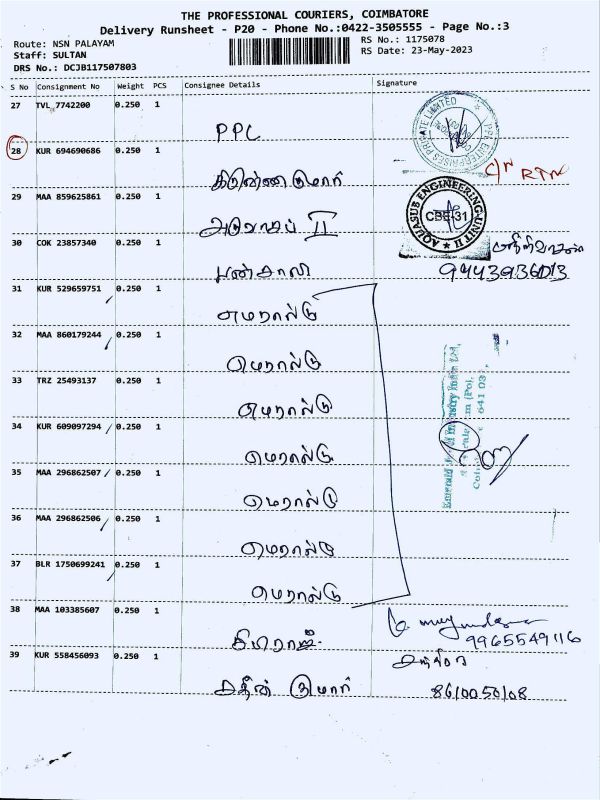 THE PROFESSIONAL COURIERS, COIMBATORE
Delivery Runsheet - P20 - Phone No.:0422-3505555 - Page No.:3
Route: NSN PALAYAM
Staff: SULTAN
DRS No.: DCJB117507803
RS No.: 1175078
RS Date: 23-May-2023
S No Consignment No Weight PCS Consignee Details Signature
27 TVL 7742200 0.250 1
PPC
28 KUR 694690686 0.250 1
C/N RTN
கிருஷ்ணகுமார்
29 MAA 859625861 0.250 1
AQUASUB ENGINEERING-UNIT II
CBE-31
II
30 COK 23857340 0.250 1
31 KUR 529659751 0.250 1
எமரால்டு
32 MAA 860179244 0.250 1
எமரால்டு
33 TRZ 25493137 0.250 1
எமரால்டு
34 KUR 609097294 0.250 1
எமரால்டு
35 MAA 296862507 0.250 1
எமரால்டு
36 MAA 296862506 0.250 1
எமரால்டு
37 BLR 1750699241 0.250 1
எமரால்டு
38 MAA 103385607 0.250 1
9965549116
39 KUR 558456093 0.250 1
குமார்